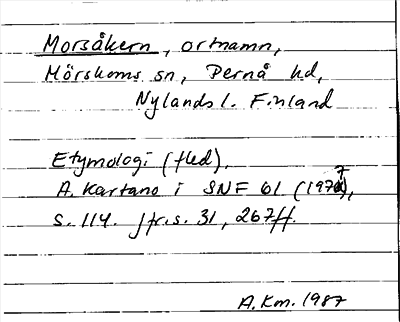 Morsåkern, ortnamn,
Mörskoms sn, Pernå hd,
Nylands l. Finland
Etymologi (fled).
A. Kartano i SNF 61 (1977),
s. 114. Jfr s. 31, 267ff.
A.Km. 1987